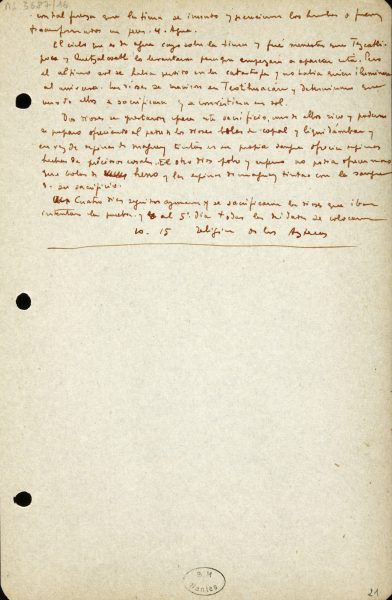 Ms 3687/16
con tal fuerza que la tierra se inundó y perecieron los hombres o fueron
transformados en peces. 4. Agua.
El cielo que es de agua cayó sobre la tierra y fué menester que Tezcatli
poca y Quetzalcoatl lo levantaran para que empezara a aparecer esta. Pero
el último sol se había perdido en la catástrofe y no había quien iluminara
al universo. Los dioses se reunieron en Teotihuacán y determinaron que
uno de ellos se sacrificara y se convirtiera en sol.
Dos dioses se prestaron para este sacrificio, uno de ellos rico y poderoso
se preparó ofreciendo al padre de los dioses bolas de copal y liquidámbar y
en vez de espinas de maguey tintas en su propia sangre ofrecía espinas
hechas de preciosos corales. El otro dios pobre y enfermo no podía ofrecer más
que bolas de heno y las espinas de maguey tintas con la sangre
de su sacrificio.
Cuatro días seguidos ayunaron y se sacrificaron los dioses que iban
intentar la prueba y al 5º día todas las deidades se colocaron
10. 15 Religión de los Aztecas
B M
Nantes
21